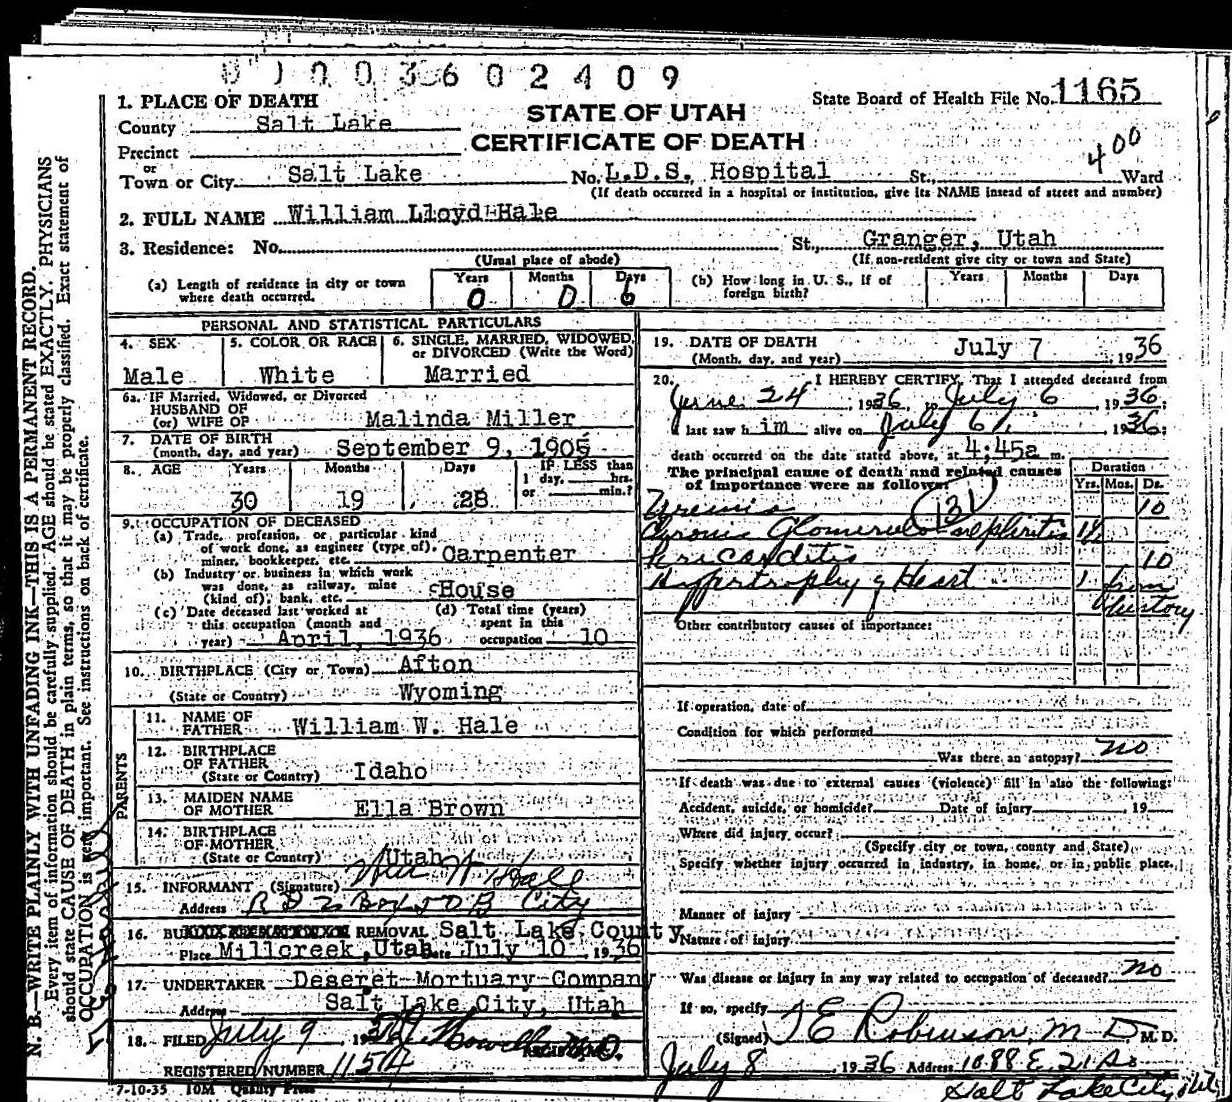 0 1 0 0 3 3 6 0 2 4 0 9
State Board of Health File No. 1165
1. PLACE OF DEATH
STATE OF UTAH
CERTIFICATE OF DEATH
County Salt Lake
Precinct
or
Town or City Salt Lake No. L.D.S. Hospital St., Ward
400
(If death occurred in a hospital or institution, give its NAME insead of street and number)
2. FULL NAME William Lloyd Hale
3. Residence: No. St., Granger, Utah
(Usual place of abode) (If non-resident give city or town and State)
(a) Length of residence in city or town where death occurred. Years 0 Months 0 Days 6
(b) How long in U. S., if of foreign birth? Years Months Days
PERSONAL AND STATISTICAL PARTICULARS
4. SEX Male
5. COLOR OR RACE White
6. SINGLE, MARRIED, WIDOWED, or DIVORCED (Write the Word) Married
6a. IF Married, Widowed, or Divorced
HUSBAND OF
(or) WIFE OF Malinda Miller
7. DATE OF BIRTH
(month, day, and year) September 9, 1905
8. AGE Years 30 Months 19 Days 28 IF LESS than 1 day, hrs. or min.?
9. OCCUPATION OF DECEASED
(a) Trade, profession, or particular kind
of work done, as engineer (type of),
miner, bookkeeper, etc. Carpenter
(b) Industry or business in which work
was done, as railway, mine
(kind of), bank, etc. House
(c) Date deceased last worked at
this occupation (month and
year) April, 1936
(d) Total time (years)
spent in this
occupation 10
10. BIRTHPLACE (City or Town) Afton
(State or Country) Wyoming
PARENTS
11. NAME OF
FATHER William W. Hale
12. BIRTHPLACE
OF FATHER
(State or Country) Idaho
13. MAIDEN NAME
OF MOTHER Ella Brown
14. BIRTHPLACE
OF MOTHER
(State or Country) Utah
15. INFORMANT (Signature) Wm W Hale
Address R D 2 Box 50 B City
16. REMOVAL Salt Lake County
Place Millcreek, Utah Date July 10, 1936
17. UNDERTAKER Deseret Mortuary Company
Address Salt Lake City, Utah
18. FILED July 9, 19
REGISTRAR
REGISTERED NUMBER 1154
7-10-35 10M Quality Press
19. DATE OF DEATH
(Month, day, and year) July 7, 1936
20. I HEREBY CERTIFY, That I attended deceased from
June 24, 1936, to July 6, 1936;
I last saw h im alive on July 6, 1936;
death occurred on the date stated above, at 4:45a m.
The principal cause of death and related causes
of importance were as follows:
Duration
Yrs. Mos. Ds.
131
Uremia 10
Chronic Glomerulo nephritis
Pericarditis 10
Hypertrophy of Heart 1 from
history
Other contributory causes of importance:
If operation, date of
Condition for which performed
Was there an autopsy? no
If death was due to external causes (violence) fill in also the following:
Accident, suicide, or homicide? Date of injury 19
Where did injury occur?
(Specify city or town, county and State)
Specify whether injury occurred in industry, in home, or in public place.
Manner of injury
Nature of injury
Was disease or injury in any way related to occupation of deceased? no
If so, specify
(Signed) T E Robinson, M D M. D.
July 8, 1936 Address 1088 E. 21 So
Salt Lake City Utah
N. B.—WRITE PLAINLY WITH UNFADING INK—THIS IS A PERMANENT RECORD.
Every item of information should be carefully supplied. AGE should be stated EXACTLY. PHYSICIANS
should state CAUSE OF DEATH in plain terms, so that it may be properly classified. Exact statement of
OCCUPATION is very important. See instructions on back of certificate.